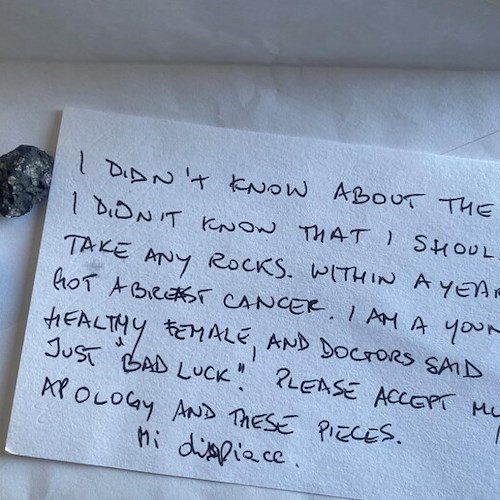 I DIDN'T KNOW ABOUT THE
I DIDN'T KNOW THAT I SHOUL
TAKE ANY ROCKS. WITHIN A YEAR
GOT A BREAST CANCER. I AM A YOUN
HEALTHY FEMALE, AND DOCTORS SAID
JUST "BAD LUCK". PLEASE ACCEPT MY
APOLOGY AND THESE PIECES.
Mi dispiace.